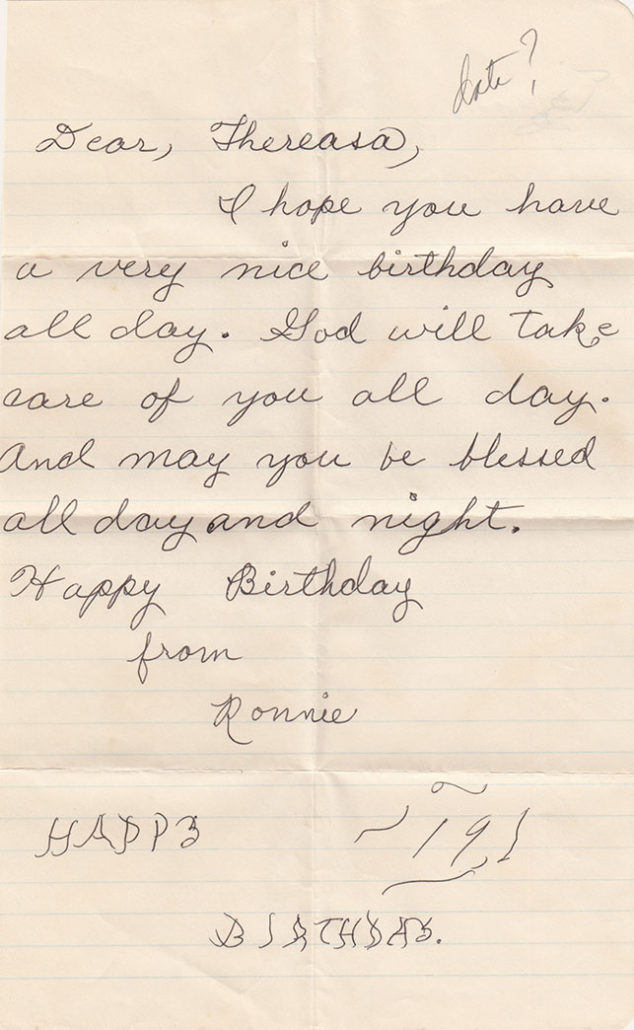 date?
Dear, Thereasa,
I hope you have
a very nice birthday
all day. God will take
care of you all day.
And may you be blessed
all day and night.
Happy Birthday
from
Ronnie
HAPPY
19
BIRTHDAY.